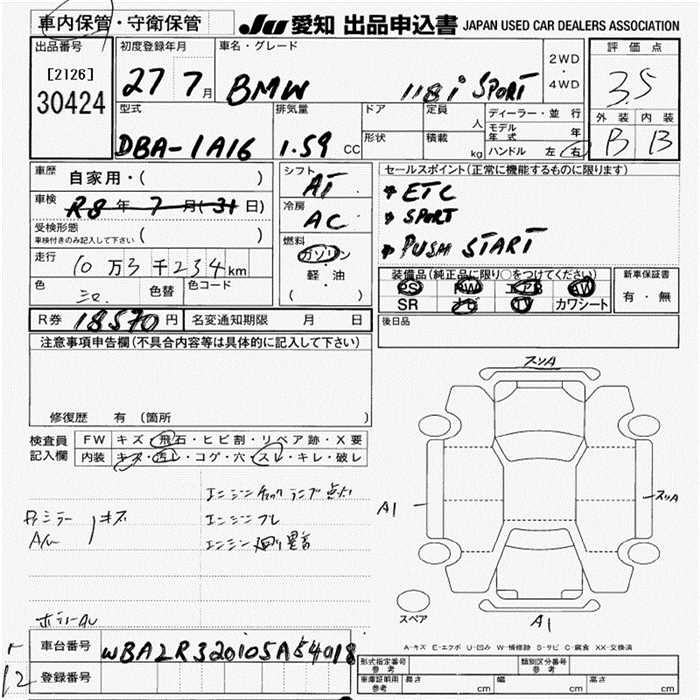 車内保管・守衛保管 JU 愛知 出品申込書 JAPAN USED CAR DEALERS ASSOCIATION
出品番号 初度登録年月 車名・グレード 2WD・4WD 評価点
[2126] 30424 27 7月 BMW 118i SPORT 3.5
型式 排気量 ドア 定員 人 ディーラー・並行 外装 内装
DBA-1A16 1.59 CC 形状 積載 kg モデル年式 年 B B
ハンドル 左 右
車歴 自家用・( ) シフト AT セールスポイント(正常に機能するものに限ります)
車検 R8年 7月(31日) 冷房 AC ETC
受検形態 ( ) SPORT
車検付きのみ記入して下さい 燃料 ガソリン PUSH START
走行 10万3千234km 軽・油
装備品(純正品に限り○をつけてください) 新車保証書
色 色替 色コード ( ) PS PW エアB AW 有・無
SR ナビ TV カワシート
R券 18570円 名変通知期限 月 日 後日品
注意事項申告欄(不具合内容等は具体的に記入して下さい)
修復歴 有 (箇所 )
検査員記入欄 FW キズ・飛石・ヒビ割・リペア跡・X要
内装 キズ・汚レ・コゲ・穴・スレ・キレ・破レ
エンジンチェックランプ点灯
Rミラー キズ エンジンブレ
A/W エンジン廻り異音
スリA
A1
スリA
スペア
A1
A-キズ E-エクボ U-凹み W-補修跡 S-サビ C-腐食 XX-交換済
車台番号 WBA2R320105A54018
12 登録番号
型式指定番号 参考 類別区分番号 参考
車庫証明用 参考 長さ cm 幅 cm 高さ cm